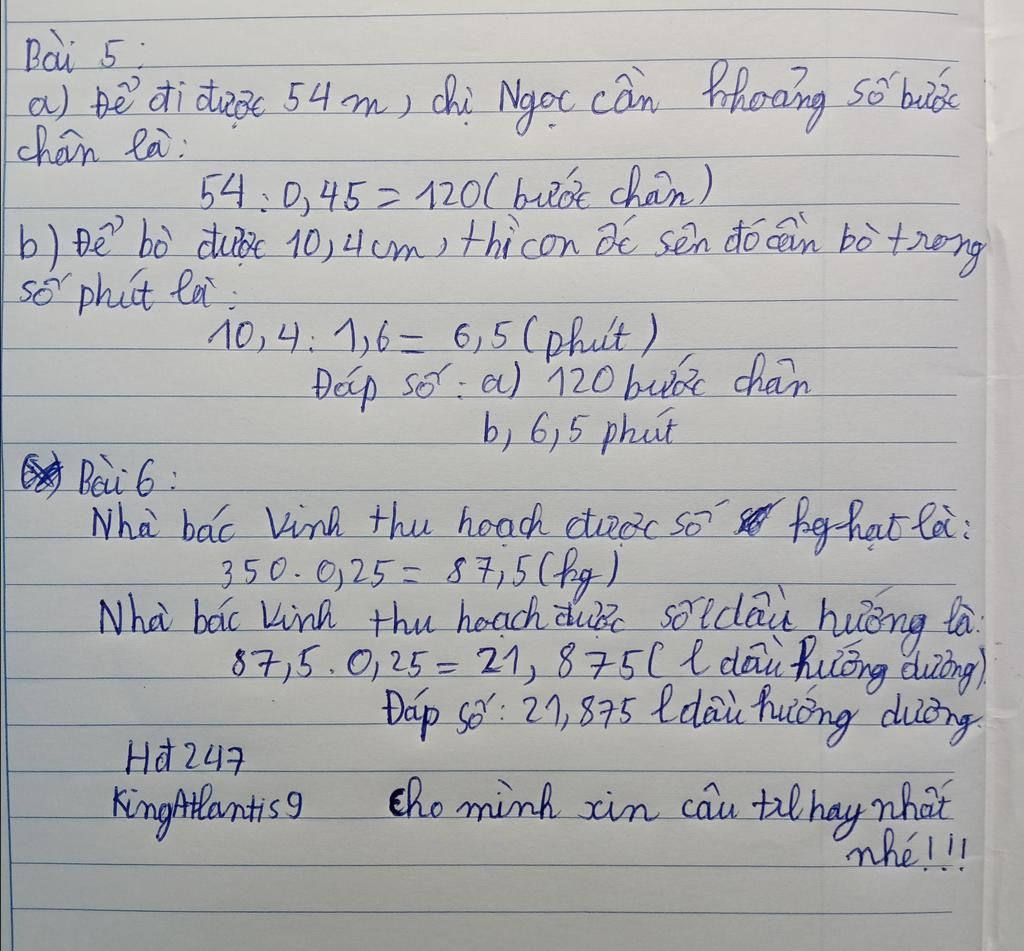 Bài 5:
a) Để đi được 54 m, chị Ngọc cần khoảng số bước
chân là:
54 : 0,45 = 120 ( bước chân )
b) Để bò được 10,4 cm, thì con ốc sên đó cần bò trong
số phút là:
10,4 : 1,6 = 6,5 ( phút )
Đáp số : a) 120 bước chân
b, 6,5 phút
Bài 6 :
Nhà bác Vinh thu hoạch được số kg hạt là:
350 . 0,25 = 87,5 (kg)
Nhà bác Vinh thu hoạch được số l dầu hướng là:
87,5 . 0,25 = 21,875 ( l dầu hướng dương)
Đáp số : 21,875 l dầu hướng dương.
Hđ247
KingAtlantis9 Cho mình xin câu trl hay nhất
nhé!!!